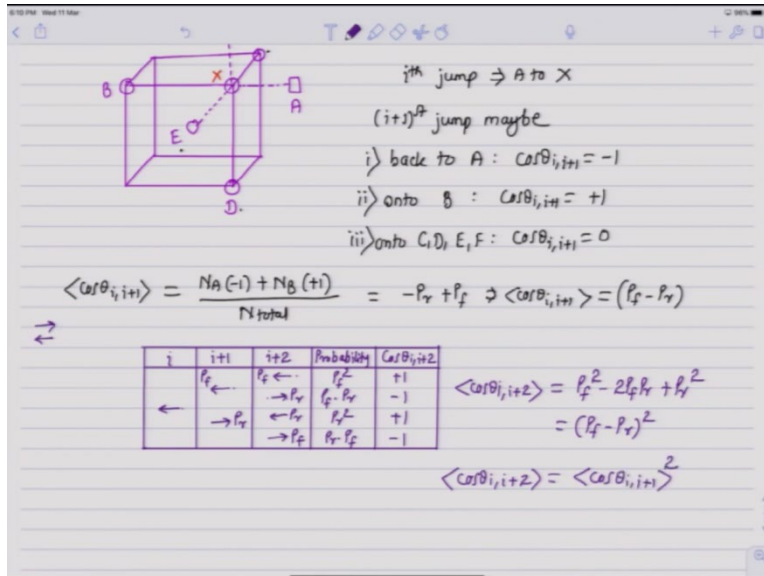 6:10 PM Wed 11 Mar
98%
B
X
A
E
D.
iᵗʰ jump ⇒ A to X
(i+1)ˢᵗ jump maybe
i) back to A : cosθi,i+1 = -1
ii) onto B : cosθi,i+1 = +1
iii) onto C,D,E,F : cosθi,i+1 = 0
<cosθi,i+1> = NA(-1) + NB(+1) / Ntotal = -Pr + Pf ⇒ <cosθi,i+1> = (Pf - Pr)
→
←
i i+1 i+2 Probability Cosθi,i+2
← Pf ← Pf ← Pf² +1
→ Pr Pf·Pr -1
→ Pr ← Pr Pr² +1
→ Pf Pr·Pf -1
<cosθi,i+2> = Pf² - 2PfPr + Pr²
= (Pf - Pr)²
<cosθi,i+2> = <cosθi,i+1>²